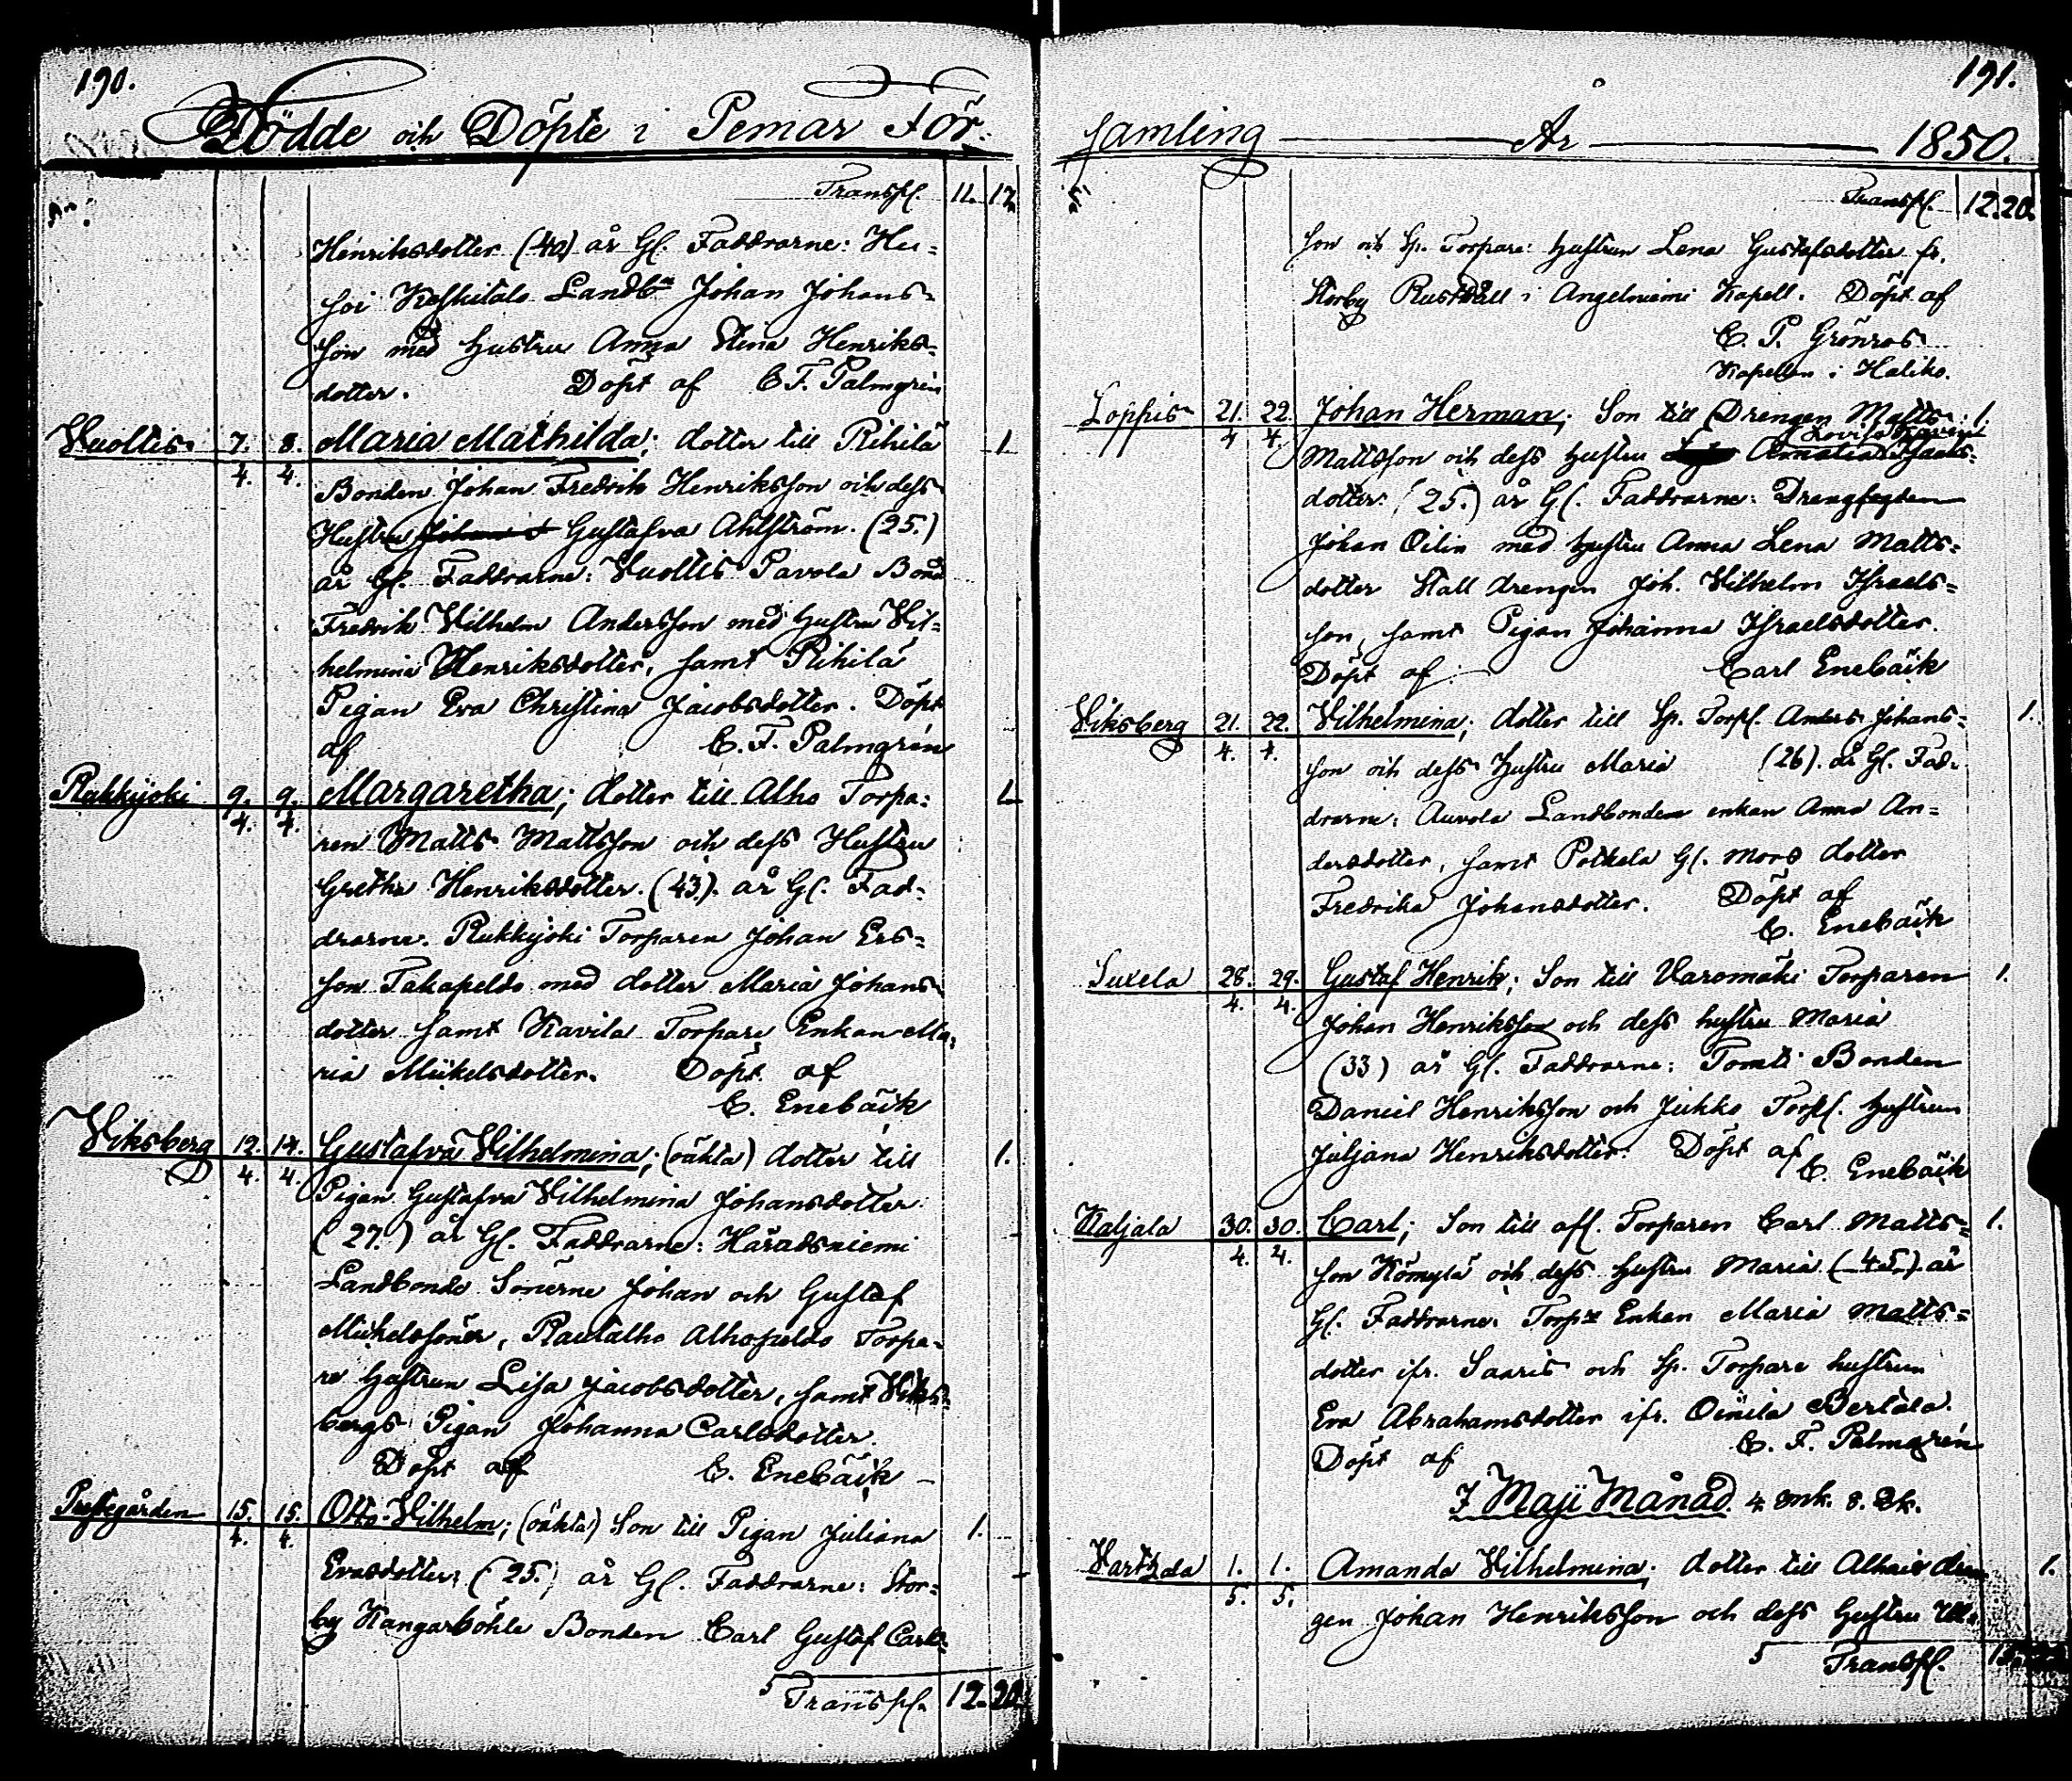 190.
Födde och Döpte i Pemar För-
Transp. 11. 17.
Henriksdotter (40) år Gl. Faddrarne: Hu-
joi Keskitalo Landb. Johan Johans-
son med hustru Anna Stina Henriks-
dotter. Döpt af C F. Palmgrén
Vuoltis 7. 8. Maria Mathilda; dotter till Rihilä 1.
4. 4. Bonden Johan Fredrik Henriksson och dess
Hustru Gustafva Ahlström. (25.)
år Gl. Faddrarne: Vuoltis Pavola Bond
Fredrik Vilhelm Andersson med hustru Vil-
helmina Henriksdotter, samt Rihilä
Pigan Eva Christina Jacobsdotter. Döpt
af C. F. Palmgrén
Rukkijoki 9. 9. Margaretha; dotter till Alho Torpa- 1.
4. 4. ren Matts Mattsson och dess Hustru
Gretha Henriksdotter. (43.) år Gl. Fad-
drarne. Rukkijoki Torparen Johan Ers-
son Takapeldo med dotter Maria Johans-
dotter samt Kavila Torpare Enkan Ma-
ria Mickelsdotter. Döpt af
C. Enebäck
Viksberg 12. 14. Gustafva Vilhelmina; (oäkta) dotter till 1.
4. 4. Pigan Gustafva Vilhelmina Johansdotter
(27.) år Gl. Faddrarne: Häradsniemi
Landbonde Sönerne Johan och Gustaf
Mickelssöner, Rautalho Alhopeldo Torpa-
re hustrun Lisa Jacobsdotter, samt Viks-
bergs Pigan Johanna Carlsdotter.
Döpt af C. Enebäck
Prestegården 15. 15. Otto Vilhelm; (oäkta) Son till Pigan Juliana 1.
4. 4. Evasdotter; (25.) år Gl. Faddrarne: Stor-
by Kangarböhle Bonden Carl Gustaf Carls-
Transp. 12. 20.
191.
samling År 1850.
Transp. 12. 20.
son och Sp. Torpare: hustrun Lena Gustafsdotter fr.
Storby Rusthåll i Angelniemi Kapell. Döpt af
C. P. Grönros
Kapellan i Haliko.
Loppis 21. 22. Johan Herman; Son till Drengen Matts 1.
4. 4. Mattsson och dess hustru Lovisa Amalia
dotter (25.) år Gl. Faddrarne: Drengfogden
Johan Oilin med hustru Anna Lena Matts-
dotter Stall drengen Joh. Vilhelm Israels-
son, samt Pigan Johanna Israelsdotter.
Döpt af Carl Enebäck
Viksberg 21. 22. Vilhelmina; dotter till Sp. Torp. Anders Johans- 1.
4. 4. son och dess hustru Maria (26). år Gl. Fad-
drarne: Auvola Landbonden enkan Anna An-
dersdotter, samt Potkela Gl. mors dotter
Fredrika Johansdotter. Döpt af
C. Enebäck
Suxela 28. 29. Gustaf Henrik; Son till Varomäki Torparen 1.
4. 4. Johan Henriksson och dess hustru Maria
(33) år Gl. Faddrarne: Tomti Bonden
Daniel Henriksson och Jukko Torp. hustrun
Juljana Henriksdotter. Döpt af
C. Enebäck
Kaljala 30. 30. Carl; Son till afl. Torparen Carl Matts- 1.
4. 4. son Kömylä och dess hustru Maria (45.) år
Gl. Faddrarne: Torp. Enkan Maria Matts-
dotter ifr. Saaris och Sp. Torpare hustrun
Eva Abrahamsdotter ifr. Oinila Bertala.
Döpt af C. F. Palmgrén
I Maji Månad 4 mk. 8. Qk.
1. 1. Amanda Vilhelmina; dotter till Alhais dren- 1.
5. 5. gen Johan Henriksson och dess hustru Ul-
Transp.